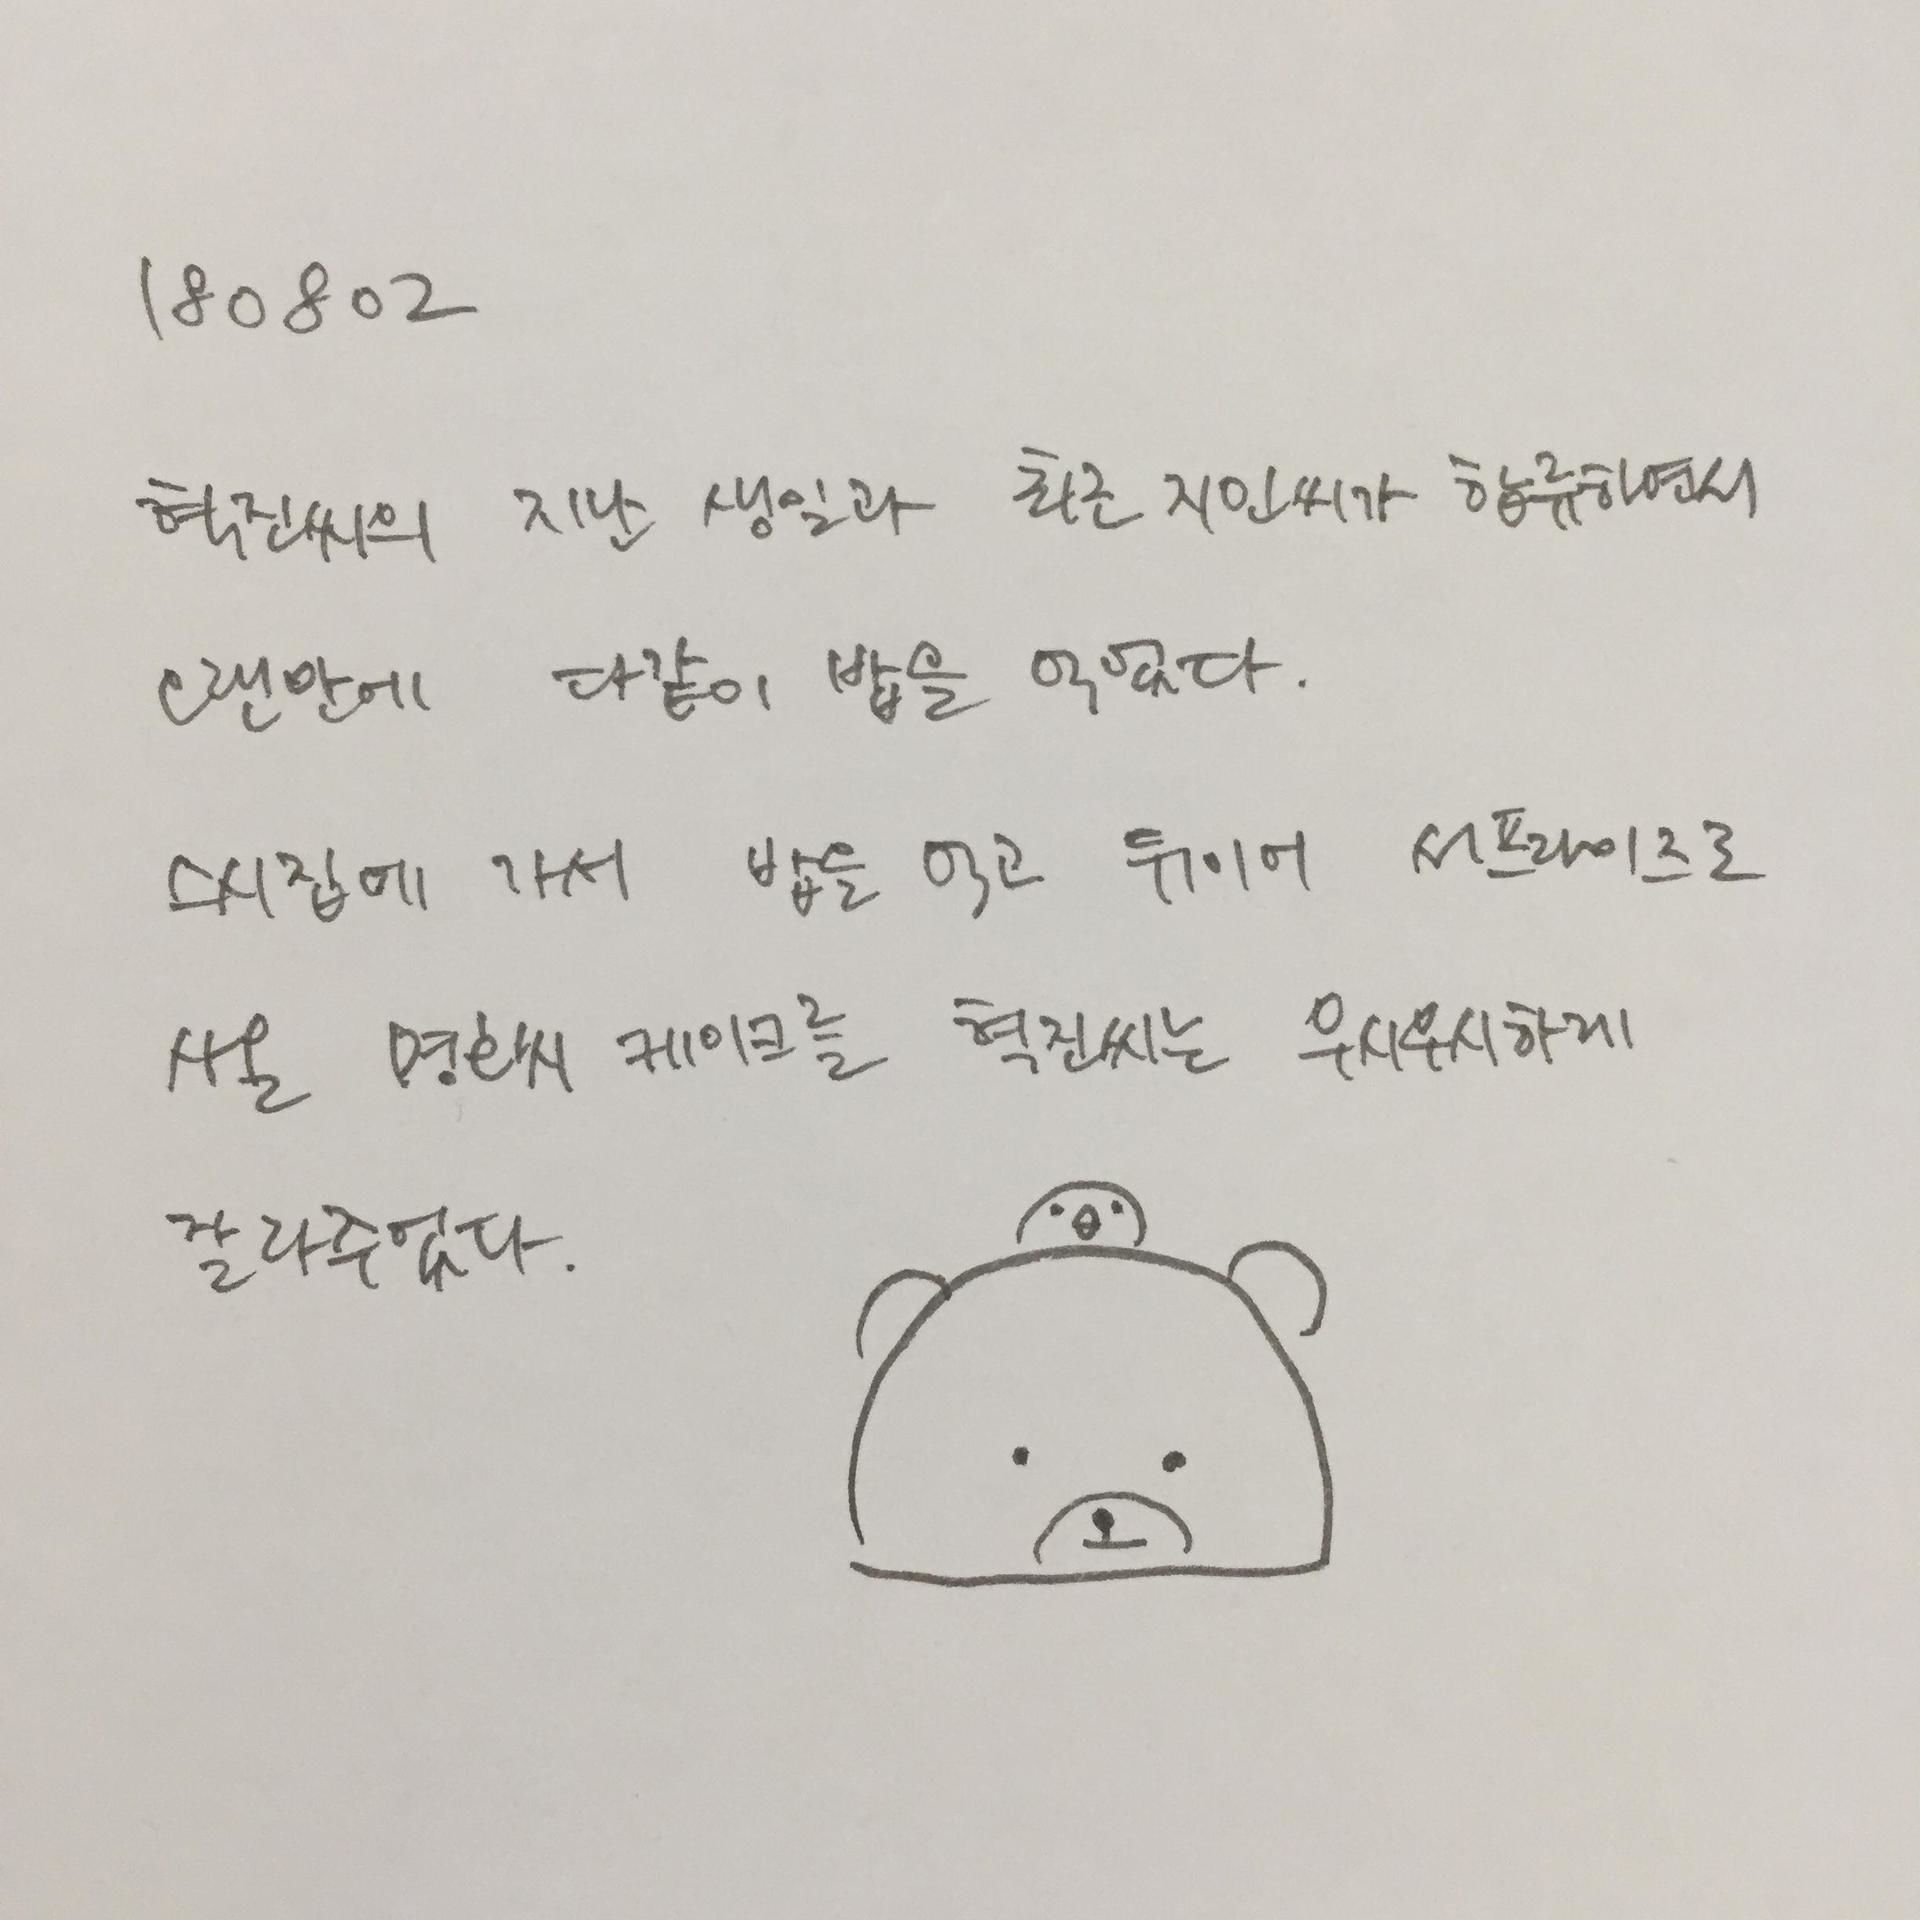 180802
혁진씨의 지난 생일과 최근 지인씨가 합류하면서
오랜만에 다같이 밥을 먹었다.
스시집에 가서 밥을 먹고 뒤이어 서프라이즈로
사온 케이크를 혁진씨는 우시우시하게
잘라주었다.